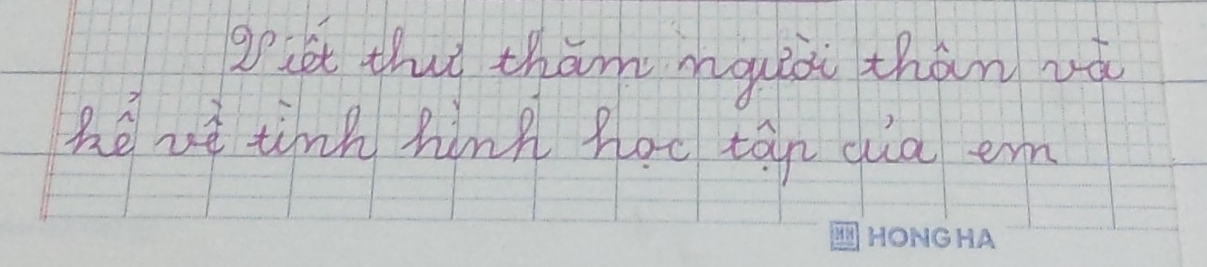 Viết thư thăm người thân và
kể về tình hình học tập của em
HONG HA